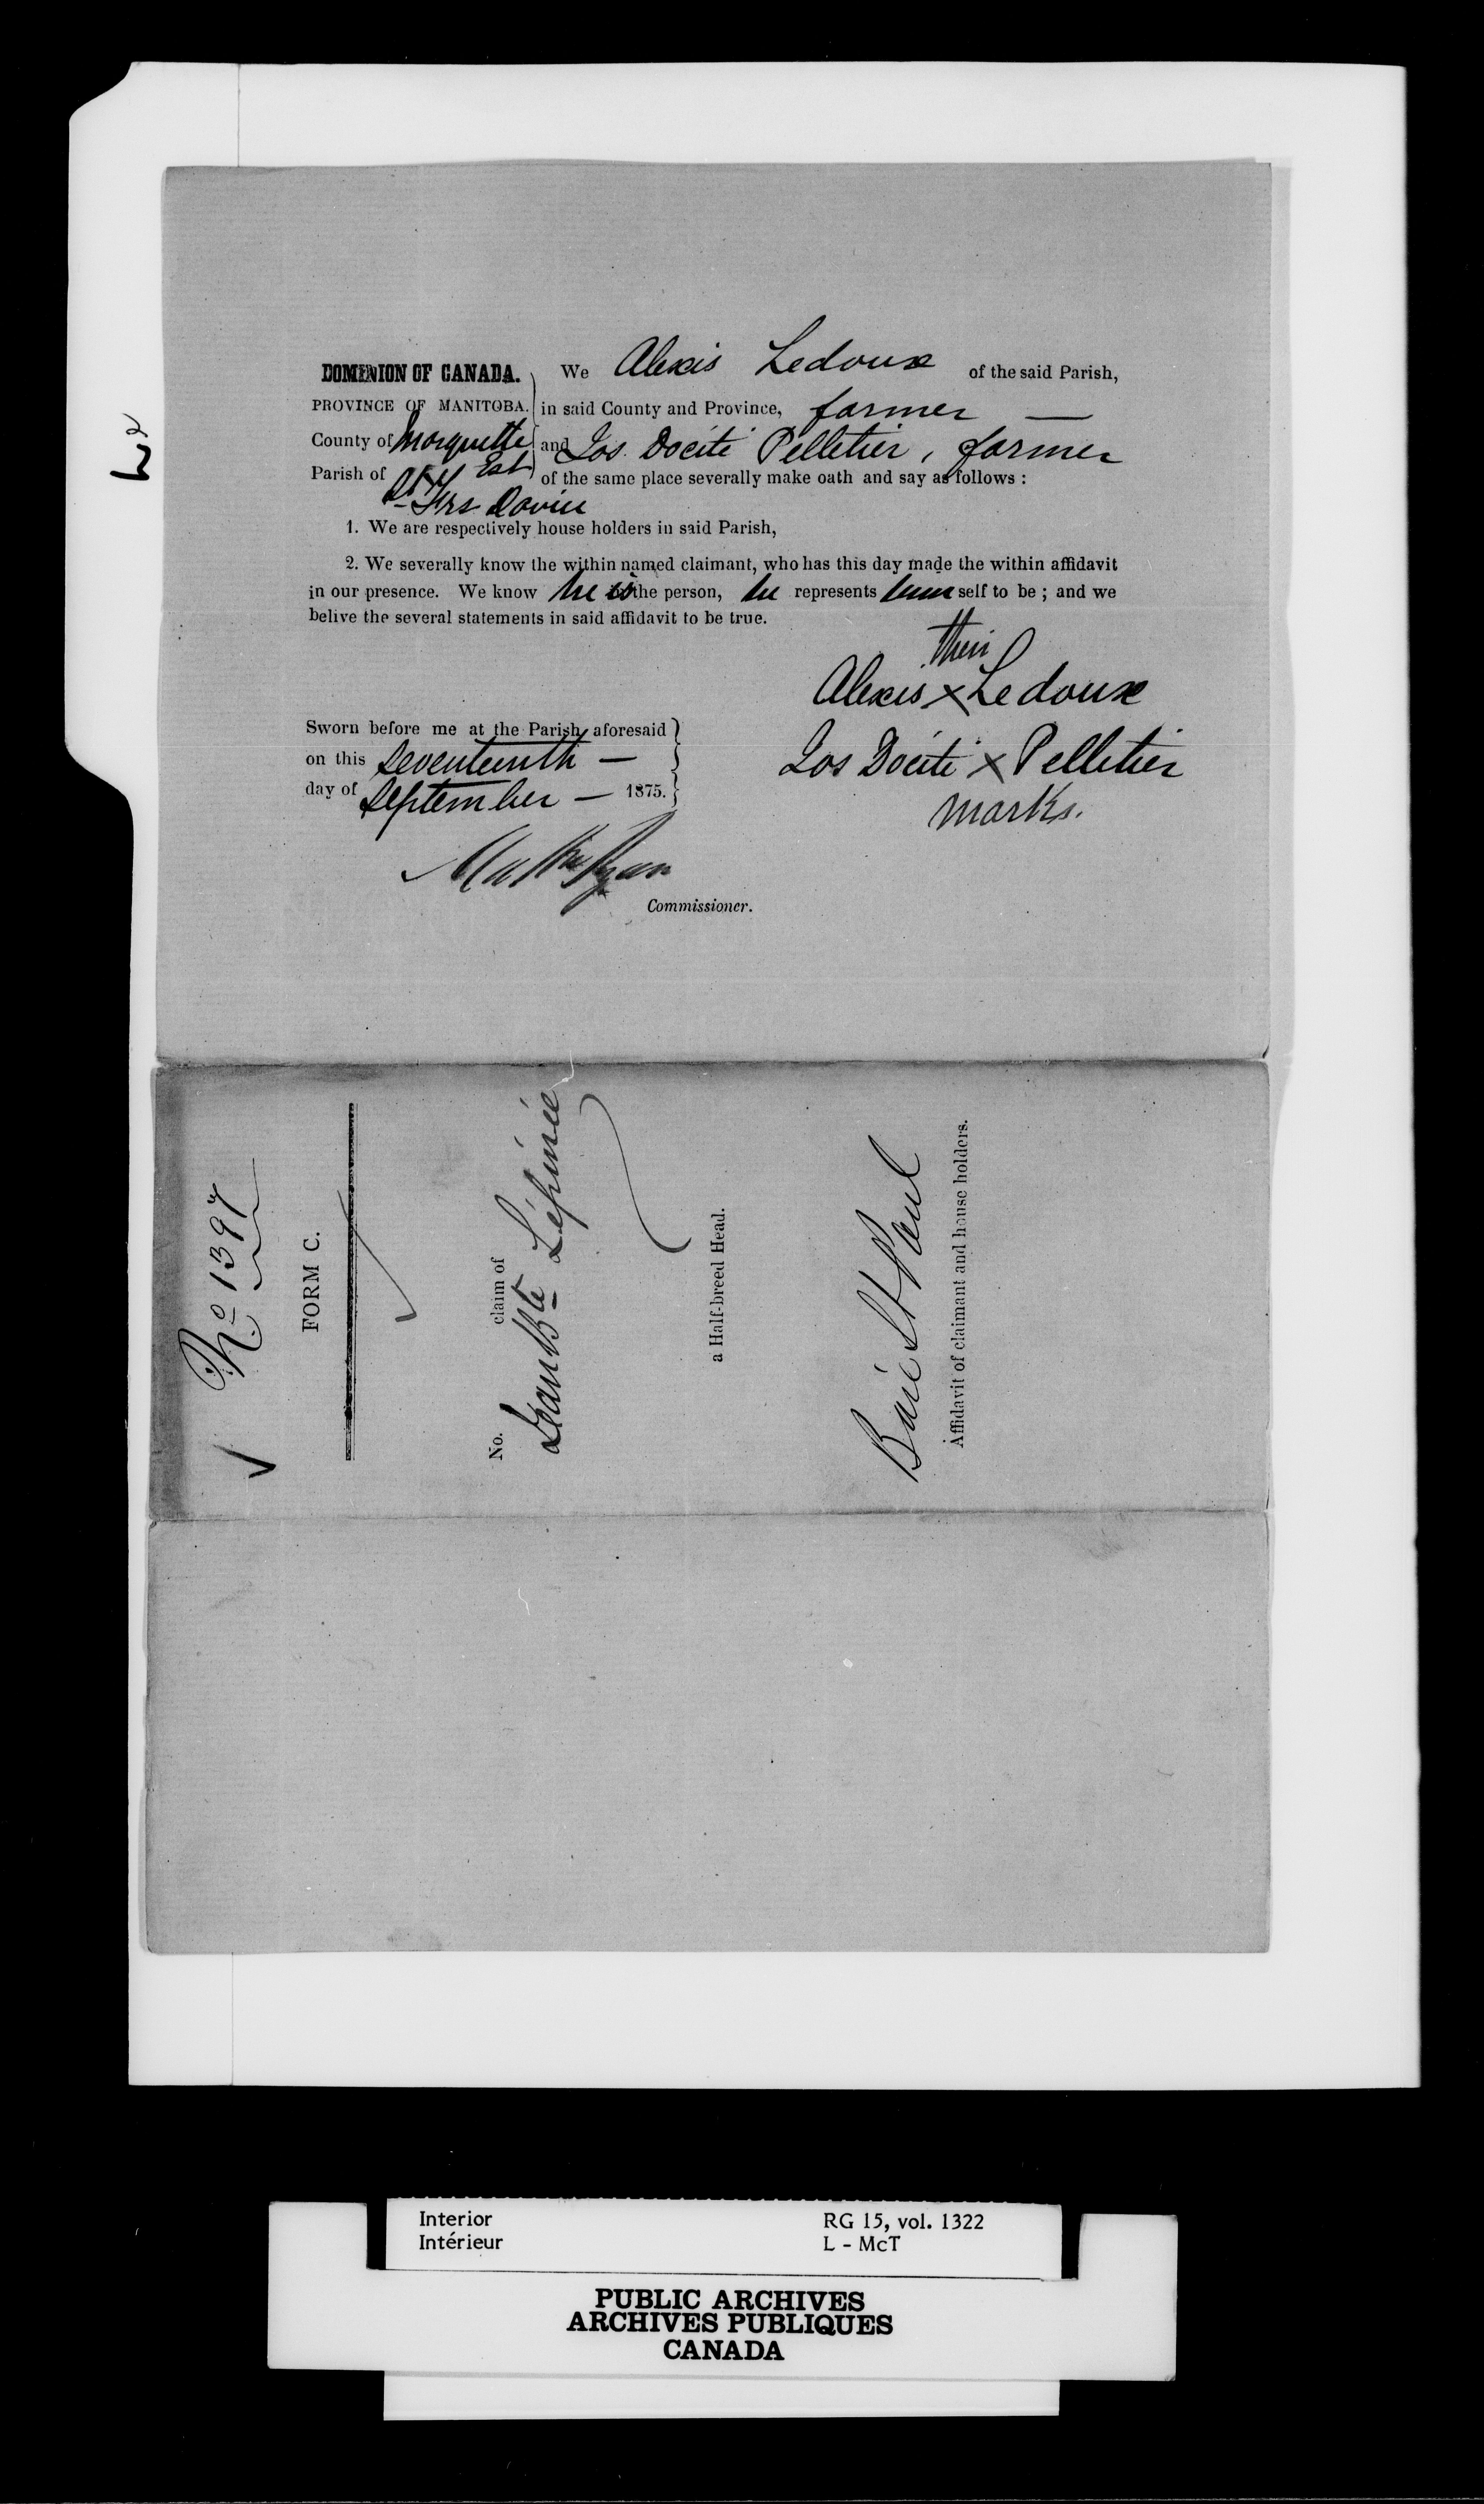 DOMINION OF CANADA.
PROVINCE OF MANITOBA.
County of Marquette
Est
Parish of St Frs Xavier
We Alexis Ledoux of the said Parish,
in said County and Province, farmer —
and Jos. Docité Pelletier, farmer
of the same place severally make oath and say as follows :
1. We are respectively house holders in said Parish,
2. We severally know the within named claimant, who has this day made the within affidavit
in our presence. We know he is the person, he represents him self to be ; and we
belive the several statements in said affidavit to be true.
their
Alexis x Ledoux
Jos Docité x Pelletier
marks.
Sworn before me at the Parish aforesaid
on this seventeenth —
day of September — 1875.
Matthew Ryan
Commissioner.
No 1397
FORM C.
No. claim of
Jean Bte Lépinie
a Half-breed Head.
Baie St Paul
Affidavit of claimant and house holders.
Interior
Intérieur
RG 15, vol. 1322
L - McT
PUBLIC ARCHIVES
ARCHIVES PUBLIQUES
CANADA